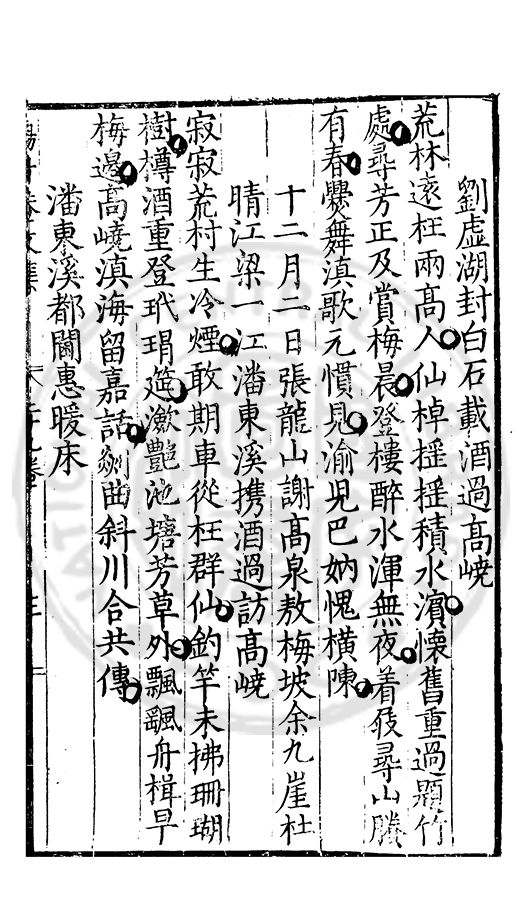 劉虛湖封白石載酒過高嶢
荒林遠枉兩高人仙棹摇摇積水濱懷舊重過題竹
處尋芳正及賞梅晨登樓醉水渾無夜着屐尋山勝
有春爨舞滇歌元慣見渝兒巴妠愧橫陳
十二月二日張龍山謝高泉敖梅坡余九崖杜
晴江梁一江潘東溪携酒過訪高嶢
寂寂荒村生冷煙敢期車從枉群仙釣竿未拂珊瑚
樹樽酒重登玳瑁筵瀲艷池塘芳草外飄颻舟楫早
梅邊高嶢滇海留嘉話剡曲斜川合共傳
潘東溪都閫惠暖床